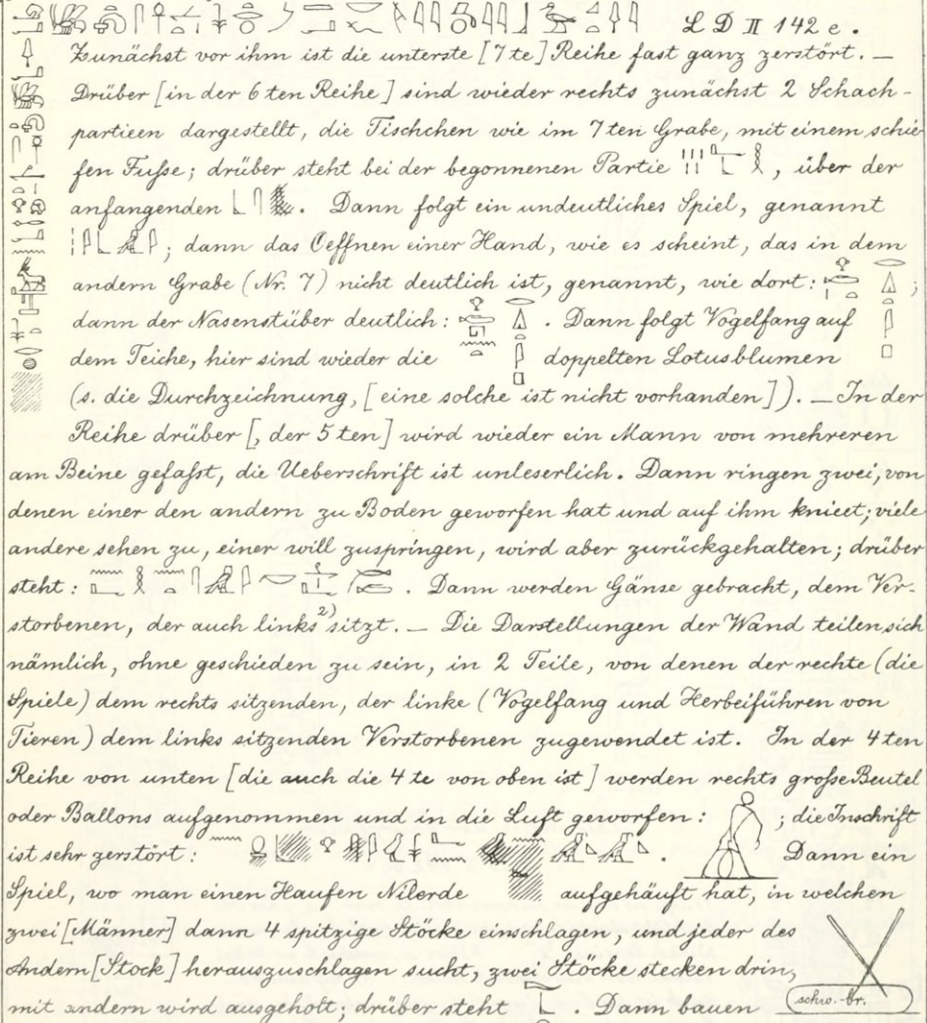 L D II 142 c.
Zunächst vor ihm ist die unterste [7 te] Reihe fast ganz zerstört. —
Drüber [in der 6 ten Reihe] sind wieder rechts zunächst 2 Schach-
partieen dargestellt, die Tischchen wie im 7 ten Grabe, mit einem schie-
fen Fuſse; drüber steht bei der begonnenen Partie , über der
anfangenden . Dann folgt ein undeutliches Spiel, genannt
; dann das Oeffnen einer Hand, wie es scheint, das in dem
andern Grabe (Nr. 7) nicht deutlich ist, genannt, wie dort: ;
dann der Nasenstüber deutlich: . Dann folgt Vogelfang auf
dem Teiche, hier sind wieder die doppelten Lotusblumen
(s. die Durchzeichnung, [eine solche ist nicht vorhanden]). — In der
Reihe drüber [, der 5 ten] wird wieder ein Mann von mehreren
am Beine gefaſst, die Ueberschrift ist unleserlich. Dann ringen zwei, von
denen einer den andern zu Boden geworfen hat und auf ihm knieet; viele
andere sehen zu, einer will zuspringen, wird aber zurückgehalten; drüber
steht: . Dann werden Gänse gebracht, dem Ver-
storbenen, der auch links 2) sitzt. — Die Darstellungen der Wand teilen sich
nämlich, ohne geschieden zu sein, in 2 Teile, von denen der rechte (die
Spiele) dem rechts sitzenden, der linke (Vogelfang und Herbeiführen von
Tieren) dem links sitzenden Verstorbenen zugewendet ist. In der 4 ten
Reihe von unten [die auch die 4 te von oben ist] werden rechts groſse Beutel
oder Ballons aufgenommen und in die Luft geworfen: ; die Inschrift
ist sehr zerstört: . Dann ein
Spiel, wo man einen Haufen Nilerde aufgehäuft hat, in welchen
zwei [Männer] dann 4 spitzige Stöcke einschlagen, und jeder des
Andern [Stock] herauszuschlagen sucht, zwei Stöcke stecken drin,
mit andern wird ausgeholt; drüber steht . Dann bauen
schw.-br.